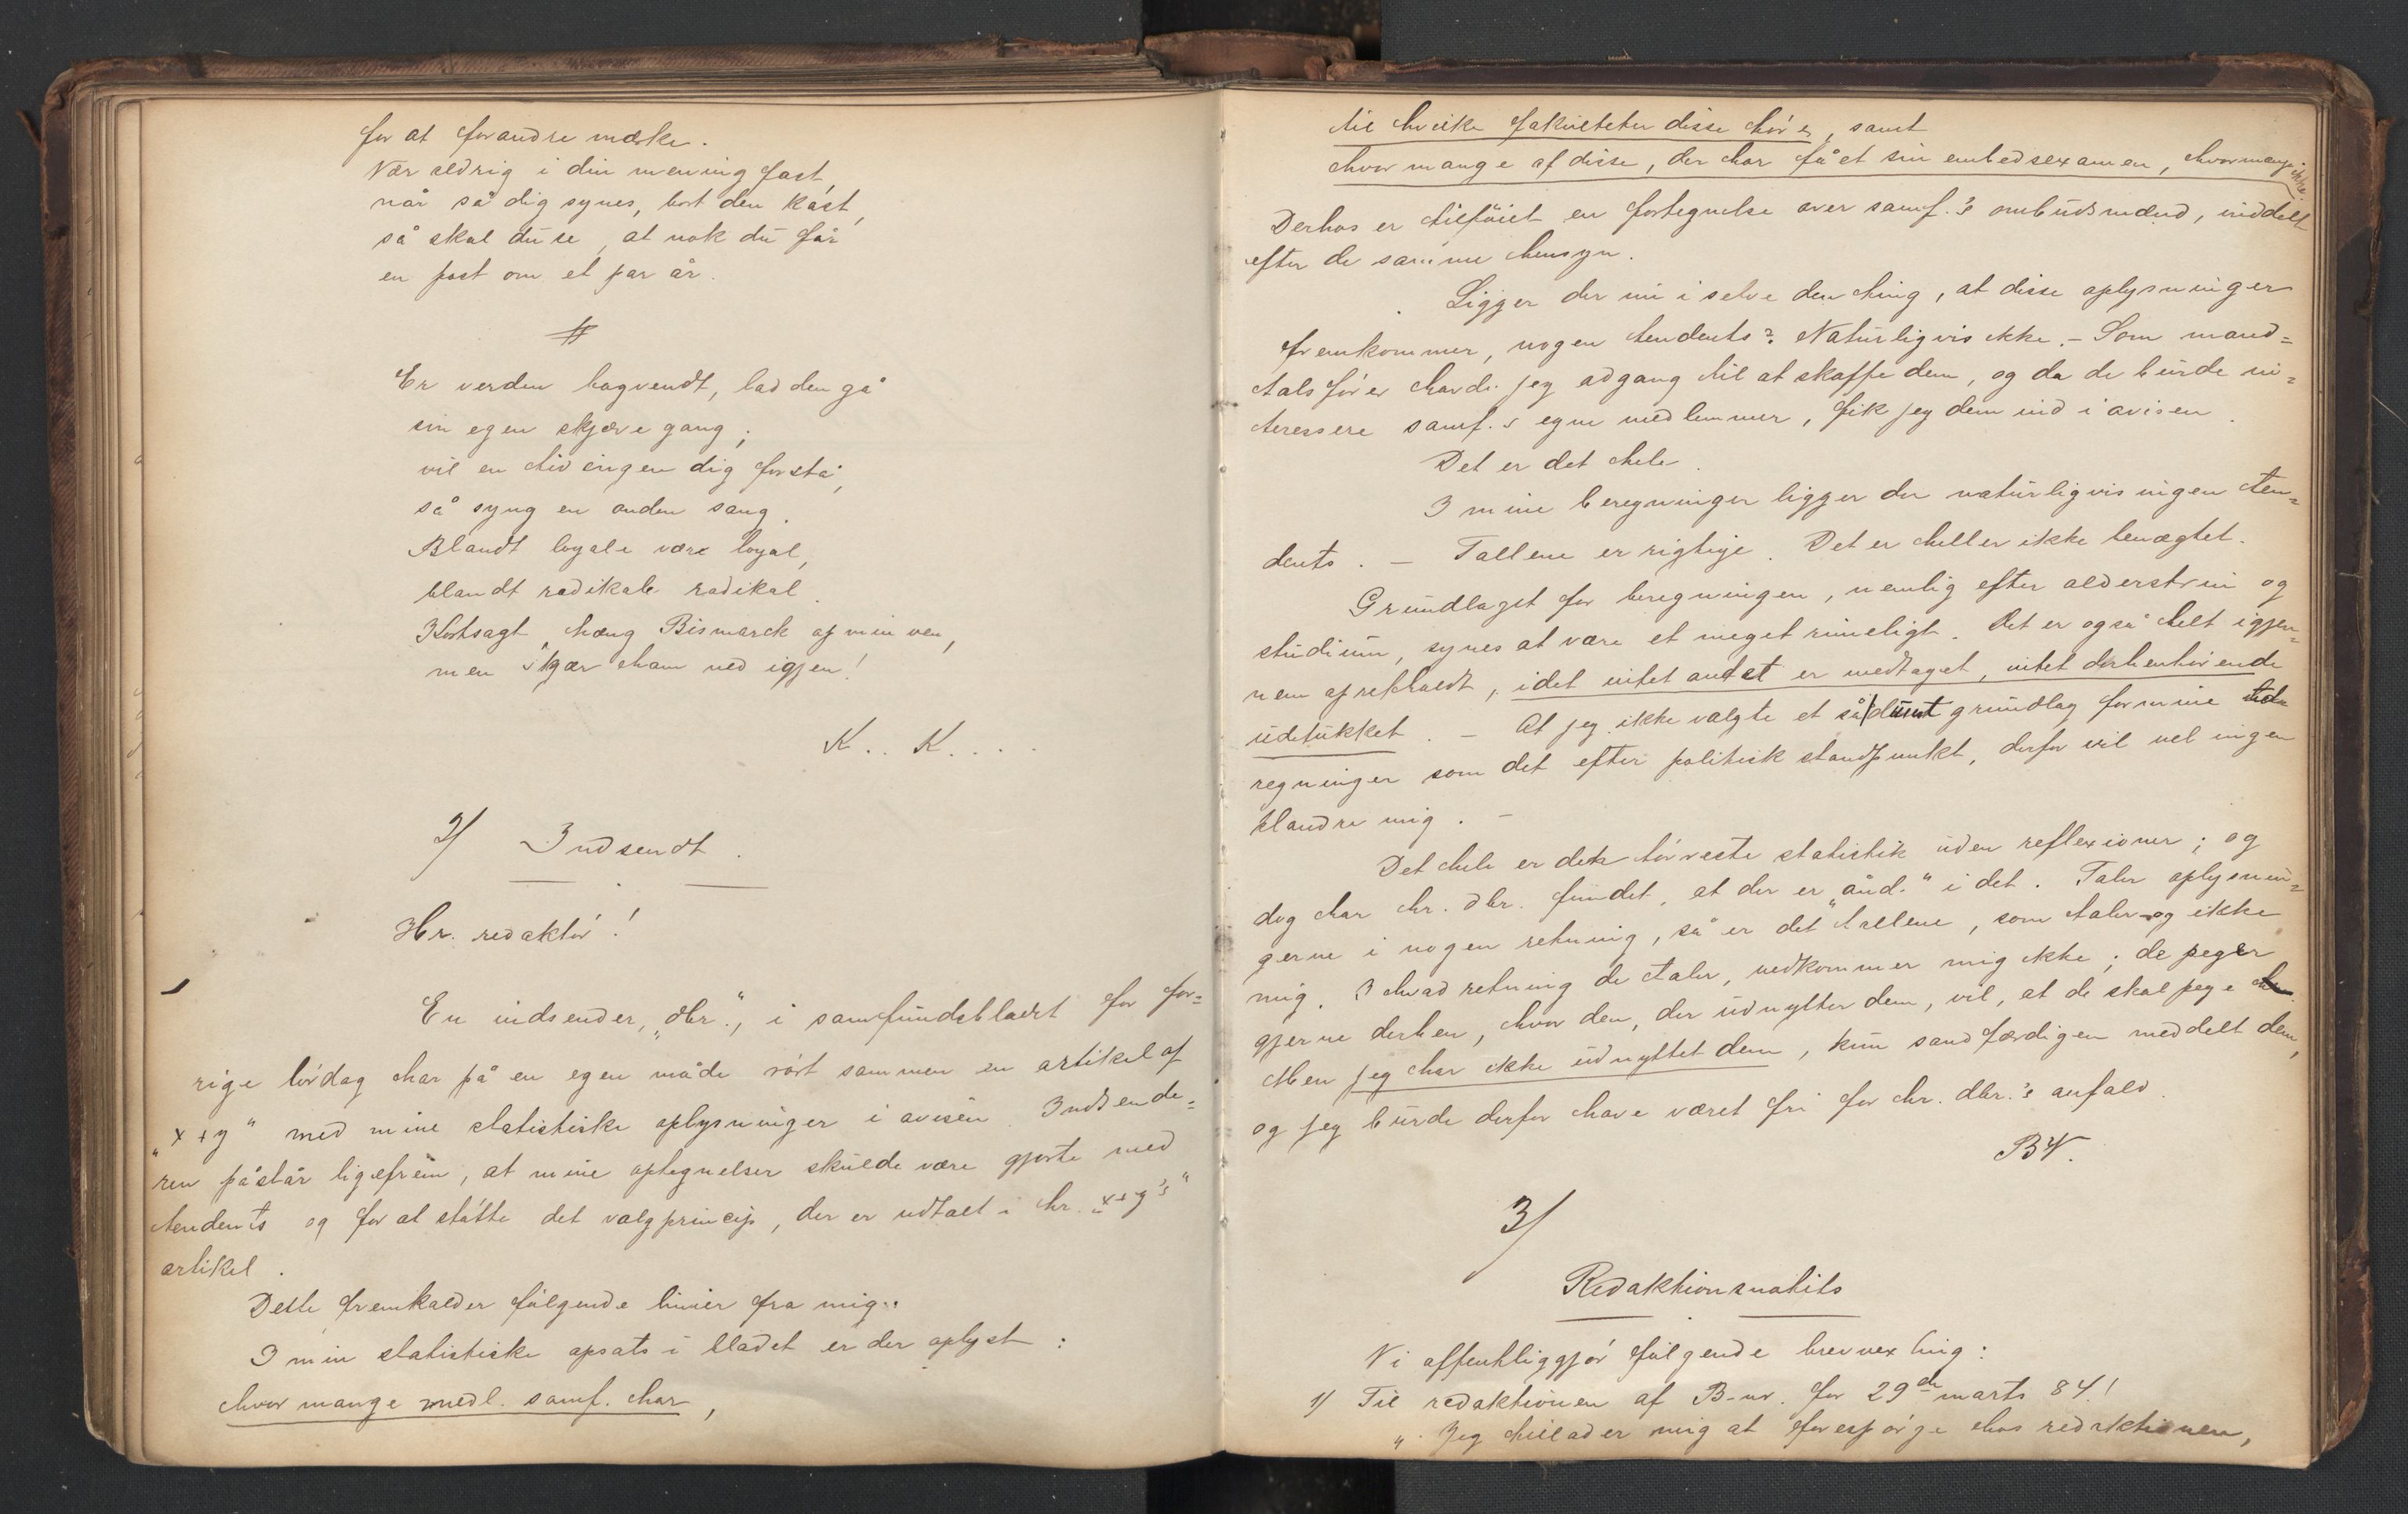 for at forandre mærke.
Vær aldrig i din mening fast,
når så dig synes, bort den kast,
så skal du se, at nok du får
en post om et par år.
#
Er verden bagvendt, lad den gå
sin egen skjæve gang;
vil en tid ingen dig forstå,
så syng en anden sang.
Blandt loyale være loyal,
blandt radikale radikal.
Kortsagt, hæng Bismarck op min ven,
men skjær ham ned igjen!
K.. K....
2/ Indsendt.
Hr. redaktør!
En indsender, „dbr.“, i samfundsbladet for for=
rige lørdag har på en egen måde rørt sammen en artikel af
„x+y“ med mine statistiske oplysninger i avisen. Indsende=
ren påstår ligefrem, at mine optegnelser skulde være gjorte med
tendents og for at støtte det valgprincip, der er udtalt i hr. „x+y's“
artikel.
Dette fremkalder følgende linier fra mig:
I min statistiske opsats i bladet er der oplyst:
hvor mange medl. samf. har,
til hvilke fakulteter disse hører, samt
hvor mange af disse, der har fået sin embedsexamen, hvormange ikke.
Derhos er tilføiet en fortegnelse over samf.'s ombudsmænd, inddelt
efter de samme hensyn.
Ligger der nu i selve den ting, at disse oplysninger
fremkommer, nogen tendents? Naturligvis ikke. – Som mand=
talsfører havde jeg adgang til at skaffe dem, og da de burde in=
teressere samf.s egne medlemmer, fik jeg dem ind i avisen.
Det er det hele.
I mine beregninger ligger der naturligvis ingen ten=
dents. – Tallene er rigtige. Det er heller ikke benægtet.
Grundlaget for beregningen, nemlig efter alderstrin og
studium, synes at være et meget rimeligt. Det er også helt igjen=
nem opretholdt, idet intet andet er medtaget, intet derhenhørende
udelukket. – At jeg ikke valgte et så dumt grundlag for mine be
regninger som det efter politisk standpunkt, derfor vil vel ingen
klandre mig. –
Det hele er den tørreste statistik uden reflexioner; og
dog har hr. dbr. fundet, at der er „ånd“ i det. Taler oplysnin=
gerne i nogen retning, så er det tallene, som taler og ikke
mig. I hvad retning de taler, vedkommer mig ikke; de peger
gjerne derhen, hvor den, der udnytter dem, vil, at de skal pege hen.
Men jeg har ikke udnyttet dem, kun sandfærdigen meddelt dem,
og jeg burde derfor have været fri for hr. dbr.'s anfald.
BV.
3/
Redaktionsnotits
Vi offentliggjør følgende brevvexling:
1/ Til redaktionen af B-nr. for 29de marts 84!
„Jeg tillader mig at forespørge hos redaktionen,